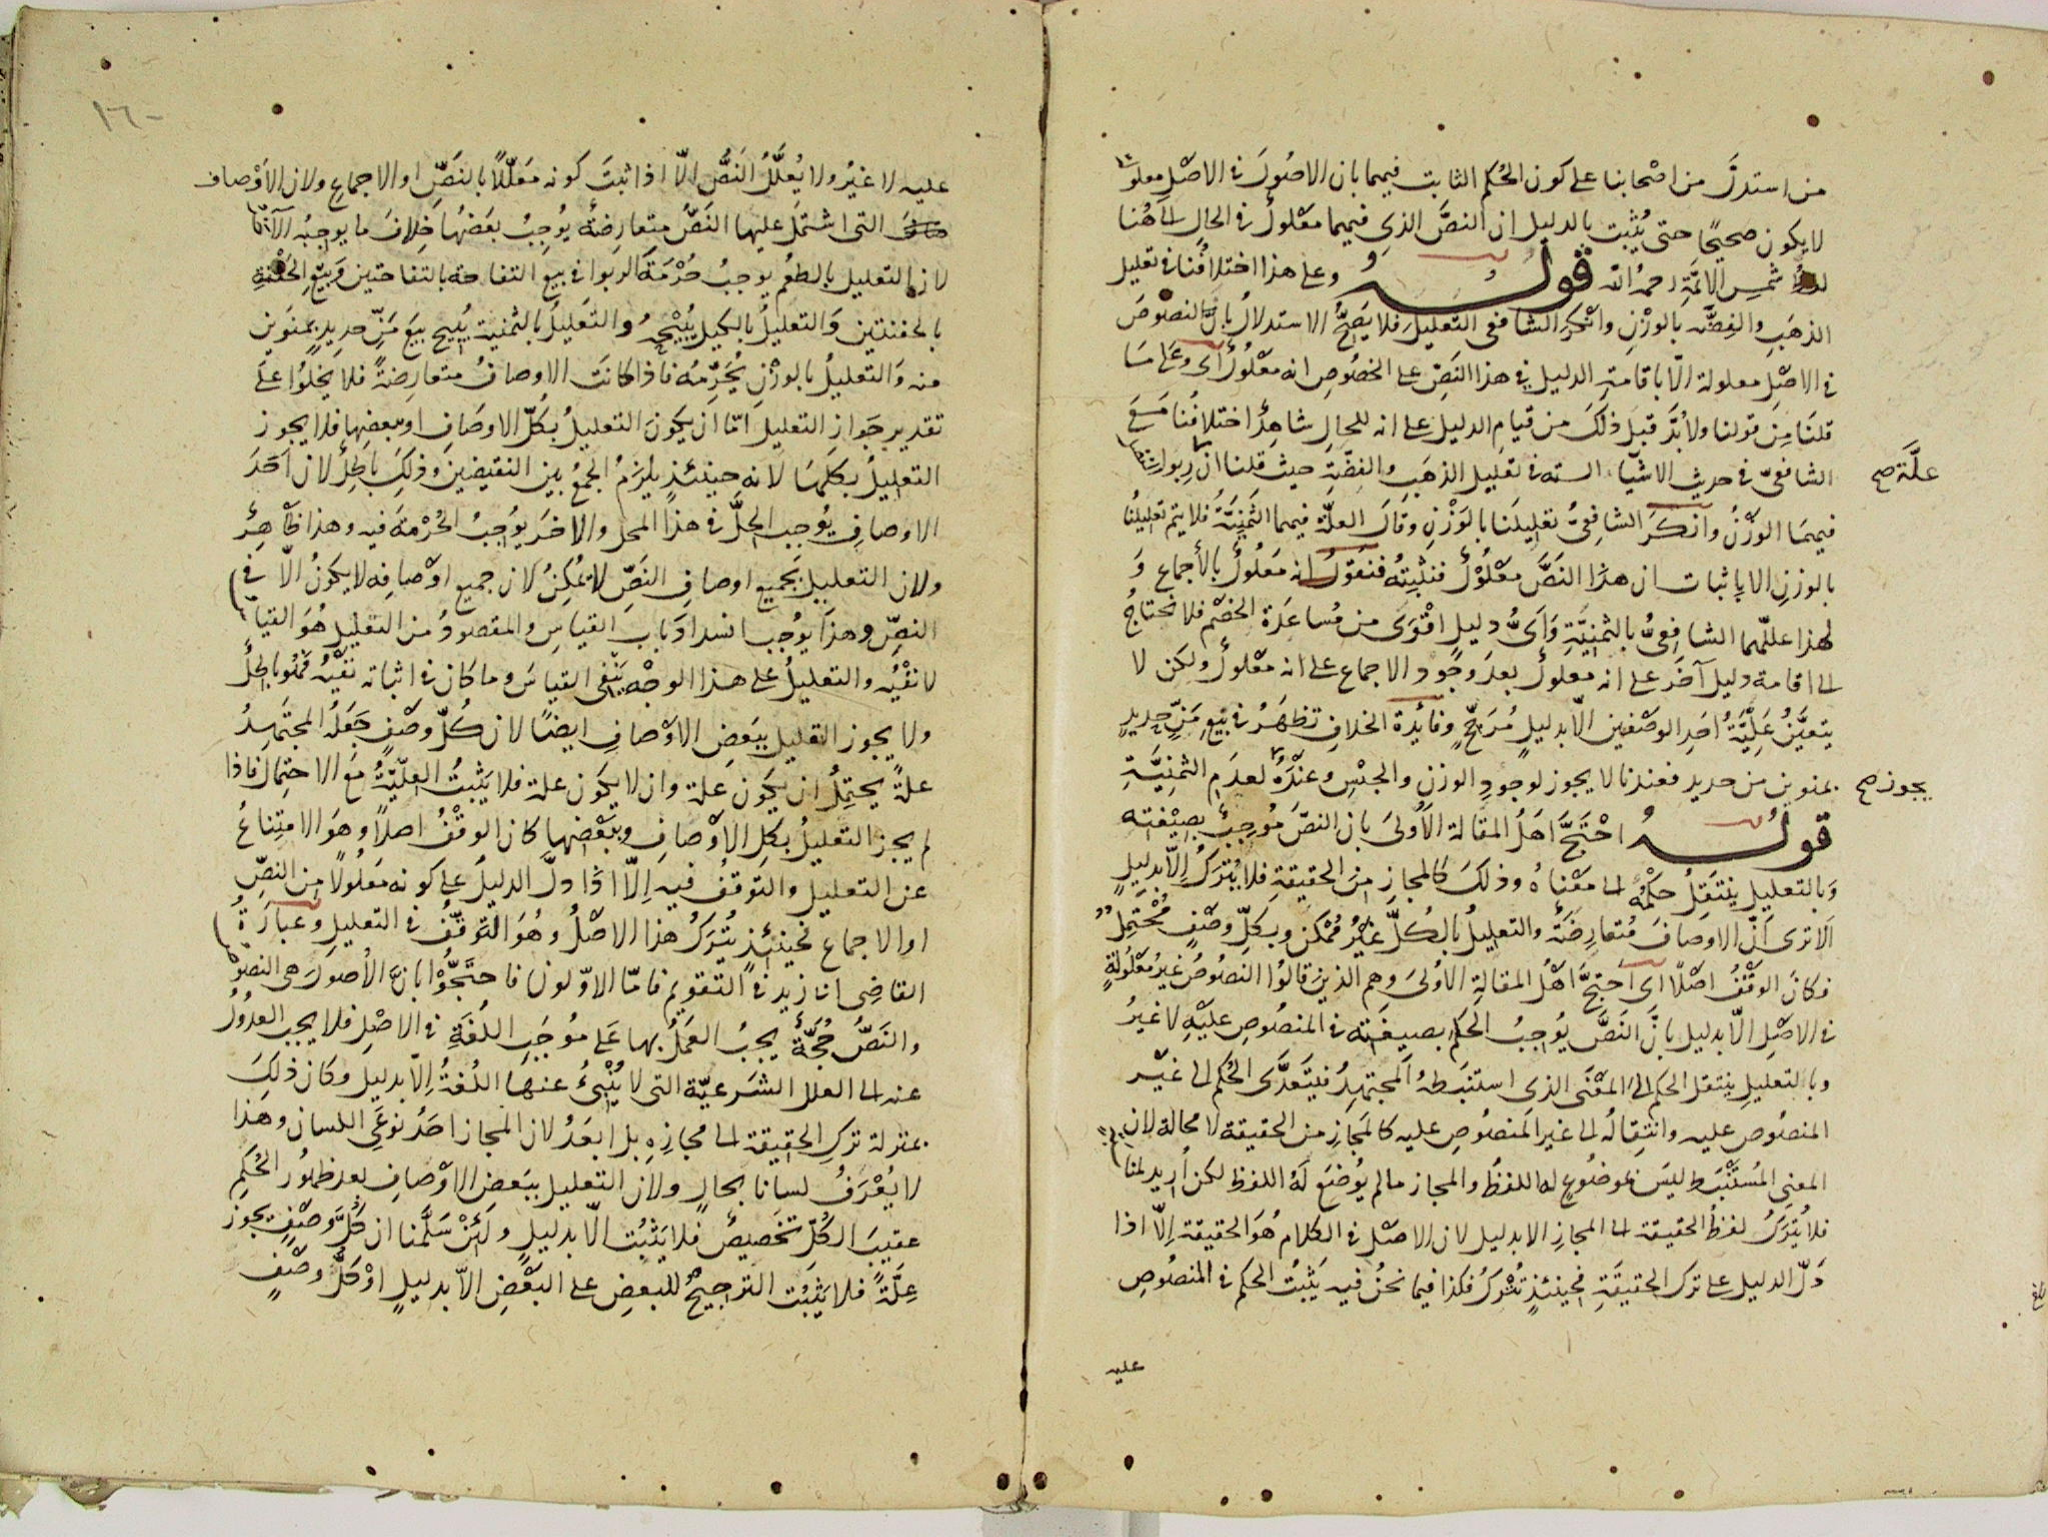 من استدلَّ من اصْحابنا على كون الحُكم الثابت فيهما بان الاصُولَ فى الاصْلِ معلولة
لا يكون صحيحًا حتى يُثبت بالدليل ان النصَّ الذى فيهما معْلولٌ فى الحال الى هُنا
لفظُ شمس الائمَّةِ رحمهُ الله قولـــهُ وعلى هذا اختلافُنا فى تعليل
الذهَبِ والفِضَّه بالوزْنِ وانْكرَ الشافعى التعْليلَ فلا يَصِحُّ الاستدلالُ بانَّ النصُوصَ
فى الاصْلِ معلولة الّا باقامةِ الدليل فى هذا النَصِّ على الخصُوصِ انه معْلُولٌ اَى وعَلى مَا
قلنَا مِن قولنا ولابُدَّ قبلَ ذلكَ من قيامِ الدليل على انه للحالِ شاهِدٌ اختلافُنا مَعَ
الشافعىّ فى حديث الاشيَاء الستّه فى تعليل الذهَبِ والفِضَّةِ حيث قلنا ان رِبوا
علَّة صح
فيهمَا الوَزْنُ وانكَرَ الشافِعىُّ تعْليلَنا بالوَزْنِ وقالَ العلَّة فيهما الثمَنيَّةُ فلا يتم تعليلُنا
بالوزنِ الا باثبات ان هذا النصَّ معْلُوْلٌ فنثبِتُه فنَقوْلُ انه معلُولٌ بالاجماع وَ
لهذا علّلهما الشافِعىُّ بالثمنيَّةِ وَاَىُّ دليلٍ اقْوَى من مُساعَدَة الخصْم فلا نحتاجُ
الى اقامة دليل آخَرَ على انه معلولٌ بعدَ وجُود الاجماع على انه معْلولٌ ولكن لا
يتعيَّنُ عِلِّيَّةُ احَدِ الوصْفين الّا بدليلٍ مُرَجِّحٍ وفائدة الخلافِ تظهَرُ فى بَيْعِ مَنِّ حديدٍ
بمنوين من حديد فعندنا لا يجوز لوجودِ الوزنِ والجنْسِ وعنْدَهُ لعدَمِ الثمنِيَّةِ
يجوز صح
قولـــهُ احْتجَّ اهلُ المقَالة الاُولىَ بان النصَّ مُوجِبٌ بصِيْغته
وَبالتعليلِ ينتقلُ حكْمُه الى معْناهُ وذلكَ كالمجازِ مِن الحقيقةِ فلا يُتركُ اِلّا بدليلٍ
اَلا ترى اَنَّ الاوصافَ مُتعارِضَةٌ والتعليلُ بالكُلِّ غيْرُ مُمْكن وبكلِّ وصْفٍ مُحْتمِلٌ
فكانَ الوقْفُ اصْلًا اى احتجَّ اهْلُ المقالةِ الاُولىَ وهم الذينَ قالُوا النصُوصُ غيْرُ معْلُولةٍ
فى الاصْلِ الّا بدليل بانَّ النَصَّ يُوجِبُ الحكم بصيغَته فى المنصُوصِ عليْهِ لا غَيْرُ
وبالتعليلِ ينتقل الحكم الى المعْنَى الذى استنبَطهُ المجتهِدُ فيَتعدَّى الحُكم الى غيْر
المنصُوص عليه وانتِقالُه الى غير المَنصُوصِ عليه كالمجَازِ من الحقيقة لا محالة لان
المعنى المُسْتنْبَط ليسَ بموضُوعٍ له اللفظُ والمجاز ما لم يُوضَع لَهُ اللفظ لكن اُريد لمنا
فلا يُترَكُ لفظُ الحقيقة الى المجازِ الا بدليل لان الاصْل فى الكلام هُوَ الحقيقة اِلّا اذا
دَلَّ الدليل على ترك الحقيقَةِ فحينئذٍ تُترَكُ فكذا فيما نحنُ فيه يَثبتُ الحكم فى المنصُوصِ
عليه
١٦٠
عليه لا غيْرُ ولا يُعلَّلُ النَصُّ الّا اذا ثبتَ كونه معَلّلًا بالنَصِّ او الاجماع ولان الاَوْصاف
التى اشتملَ عليها النَصُّ متعارِضةٌ يُوجِبُ بعَضُها خِلافَ ما يوجِبُه الآخر
لان التعليل بالطعْم يوجبُ حُرْمَةَ الربوا فى بيع التفاحة بالتفاحتين وَبيْعِ الحَفْنَةِ
بالحفنتين وَالتعليلُ بالكيل يُبيْحُه والتعليلُ بالثمنية يُبيح بيعَ مَنِّ حديدٍ بمنَوين
منه وَالتعليلُ بالوزْنِ يُحَرِّمُه فاذا كانَت الاوصافُ متعارِضَةً فلا يخلُوا على
تقدير جَواز التعليل امّا ان يكونَ التعليلُ بكلّ الاوصَافِ او ببعضِها فلا يجوز
التعليلُ بكلهَا لانه حينئذٍ يلزَمُ الجمعُ بين النقيضين وذلِكَ باطِلٌ لان اَحَدَ
الاوصافِ يُوجب الحِلَّ فى هذا المحل والاخرَ يوُجبُ الحُرْمةَ فيه وهذا ظاهِرٌ
ولان التعليل بجَميع اوصافِ النَصِّ لا يُمكِنُ لان جميع اوْصافِه لا يكونُ الّا فى
النصِّ وهذا يُوجب انسدادَ باب القياسِ والمقصودُ من التعليلِ هُوَ القياس
لا نفْيُه والتعليلُ على هذا الوجْه ينْفى القياسَ وما كان فى اثباته نفْيُه فهُو باطِلٌ
ولا يجوز التعليل ببَعضِ الاوْصافِ ايضًا لان كُلّ وصْفٍ جَعَلهُ المجتَهِدُ
علةً يحتمِلُ ان يكون علة وان لا يكون علة فلا يَثبتُ العلّيَّةُ مع الاحتِمال فاذا
لم يجز التعليلُ بكلِ الاوْصافِ وببَعْضِها كان الوقْفُ اصلًا وهوَ الامتِناعُ
عن التعليل والتوقف فيه اِلّا اذا دلَّ الدليلُ على كونه معلُولًا من النصِّ
او الاجماع فحينئِذٍ يُترَكُ هذا الاصْلُ وهُوَ التوقّفُ فى التعليلِ وعبارَةُ
القاضِى ابى زيد فى التقويم فامّا الاوّلون فاحتَجُّوْا بانَّ الاُصولَ هى النصوص
والنَصُّ حُجَّةٌ يجبُ العَمَلُ بها عَلى مُوجَبِ اللُغَةِ فى الاصْلِ فلا يجب العدُولُ
عنه الى العلل الشَرعيّة التى لا يُنْبِىُ عنهَا اللُغةُ اِلّا بدليل وكان ذلكَ
بمنزلة ترْكِ الحقيقة الى مجازِهِ بل ابعَدُ لان المجاز احَدُ نوْعَى اللسان وهذا
لا يُعْرَفُ لسانا بحالٍ ولان التعليل ببَعض الاوْصافِ بعد ظهُور الحُكم
عقيبَ الكُلّ تخصيصٌ فلا يَثبُت الّا بدليلٍ ولَئِنْ سَلَّمنا ان كُلَّ وصْفٍ يجوز
عِلَّةً فلا يَثبُت الترجيحُ للبعضِ على البَعْضِ الّا بدليلٍ اوْ كلُّ وصْفٍ